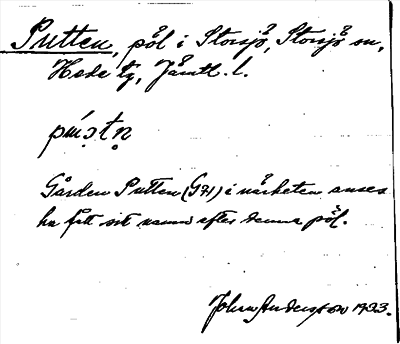 Putten, pöl i Storsjö, Storsjö sn,
Hede tg, Jämtl. l.
Gården Putten (G71) i närheten anses
ha fått sitt namn efter denna pöl.
Johan Anderson 1933.